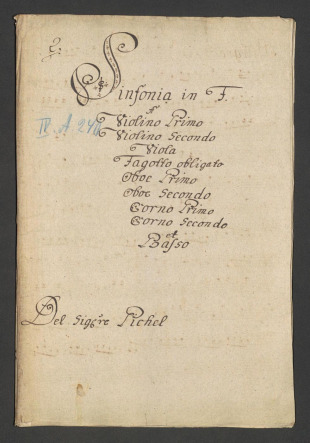 Sinfonia in F.
IV A 246
Violino Primo
Violino Secondo
Viola
Fagotto obligato
Oboe Primo
Oboe Secondo
Corno Primo
Corno Secondo
et
Basso
Del Sigre Pichel